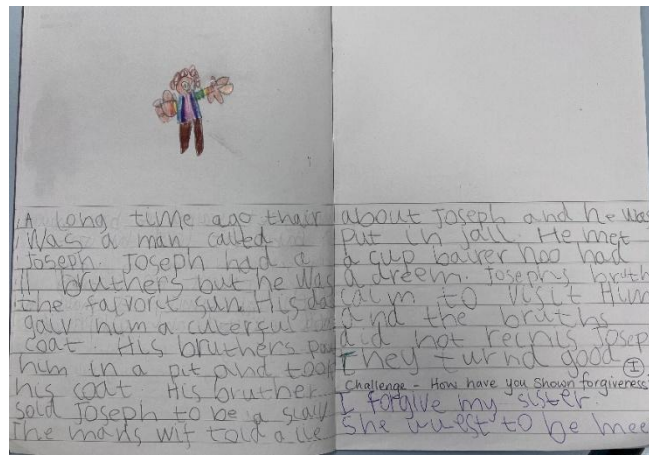 A long time ago thair
Was a man called
Joseph. Joseph had a
11 bruthers but he was
the faivorit sun. His da
gaiv him a culerful
coat. His bruthers pu
him in a pit and took
his coat His bruther
sold Joseph to be a slaiv
The mans wif told a lie
about Joseph and he was
put in jail. He met
a cup bairer hoo had
a dreem. Josephs bruth
caim to visit Him
and the bruths
did not recnis Josep
They turnd good
I
Challenge - How have you shown forgiveness
I forgive my sister.
She uuest to be mee